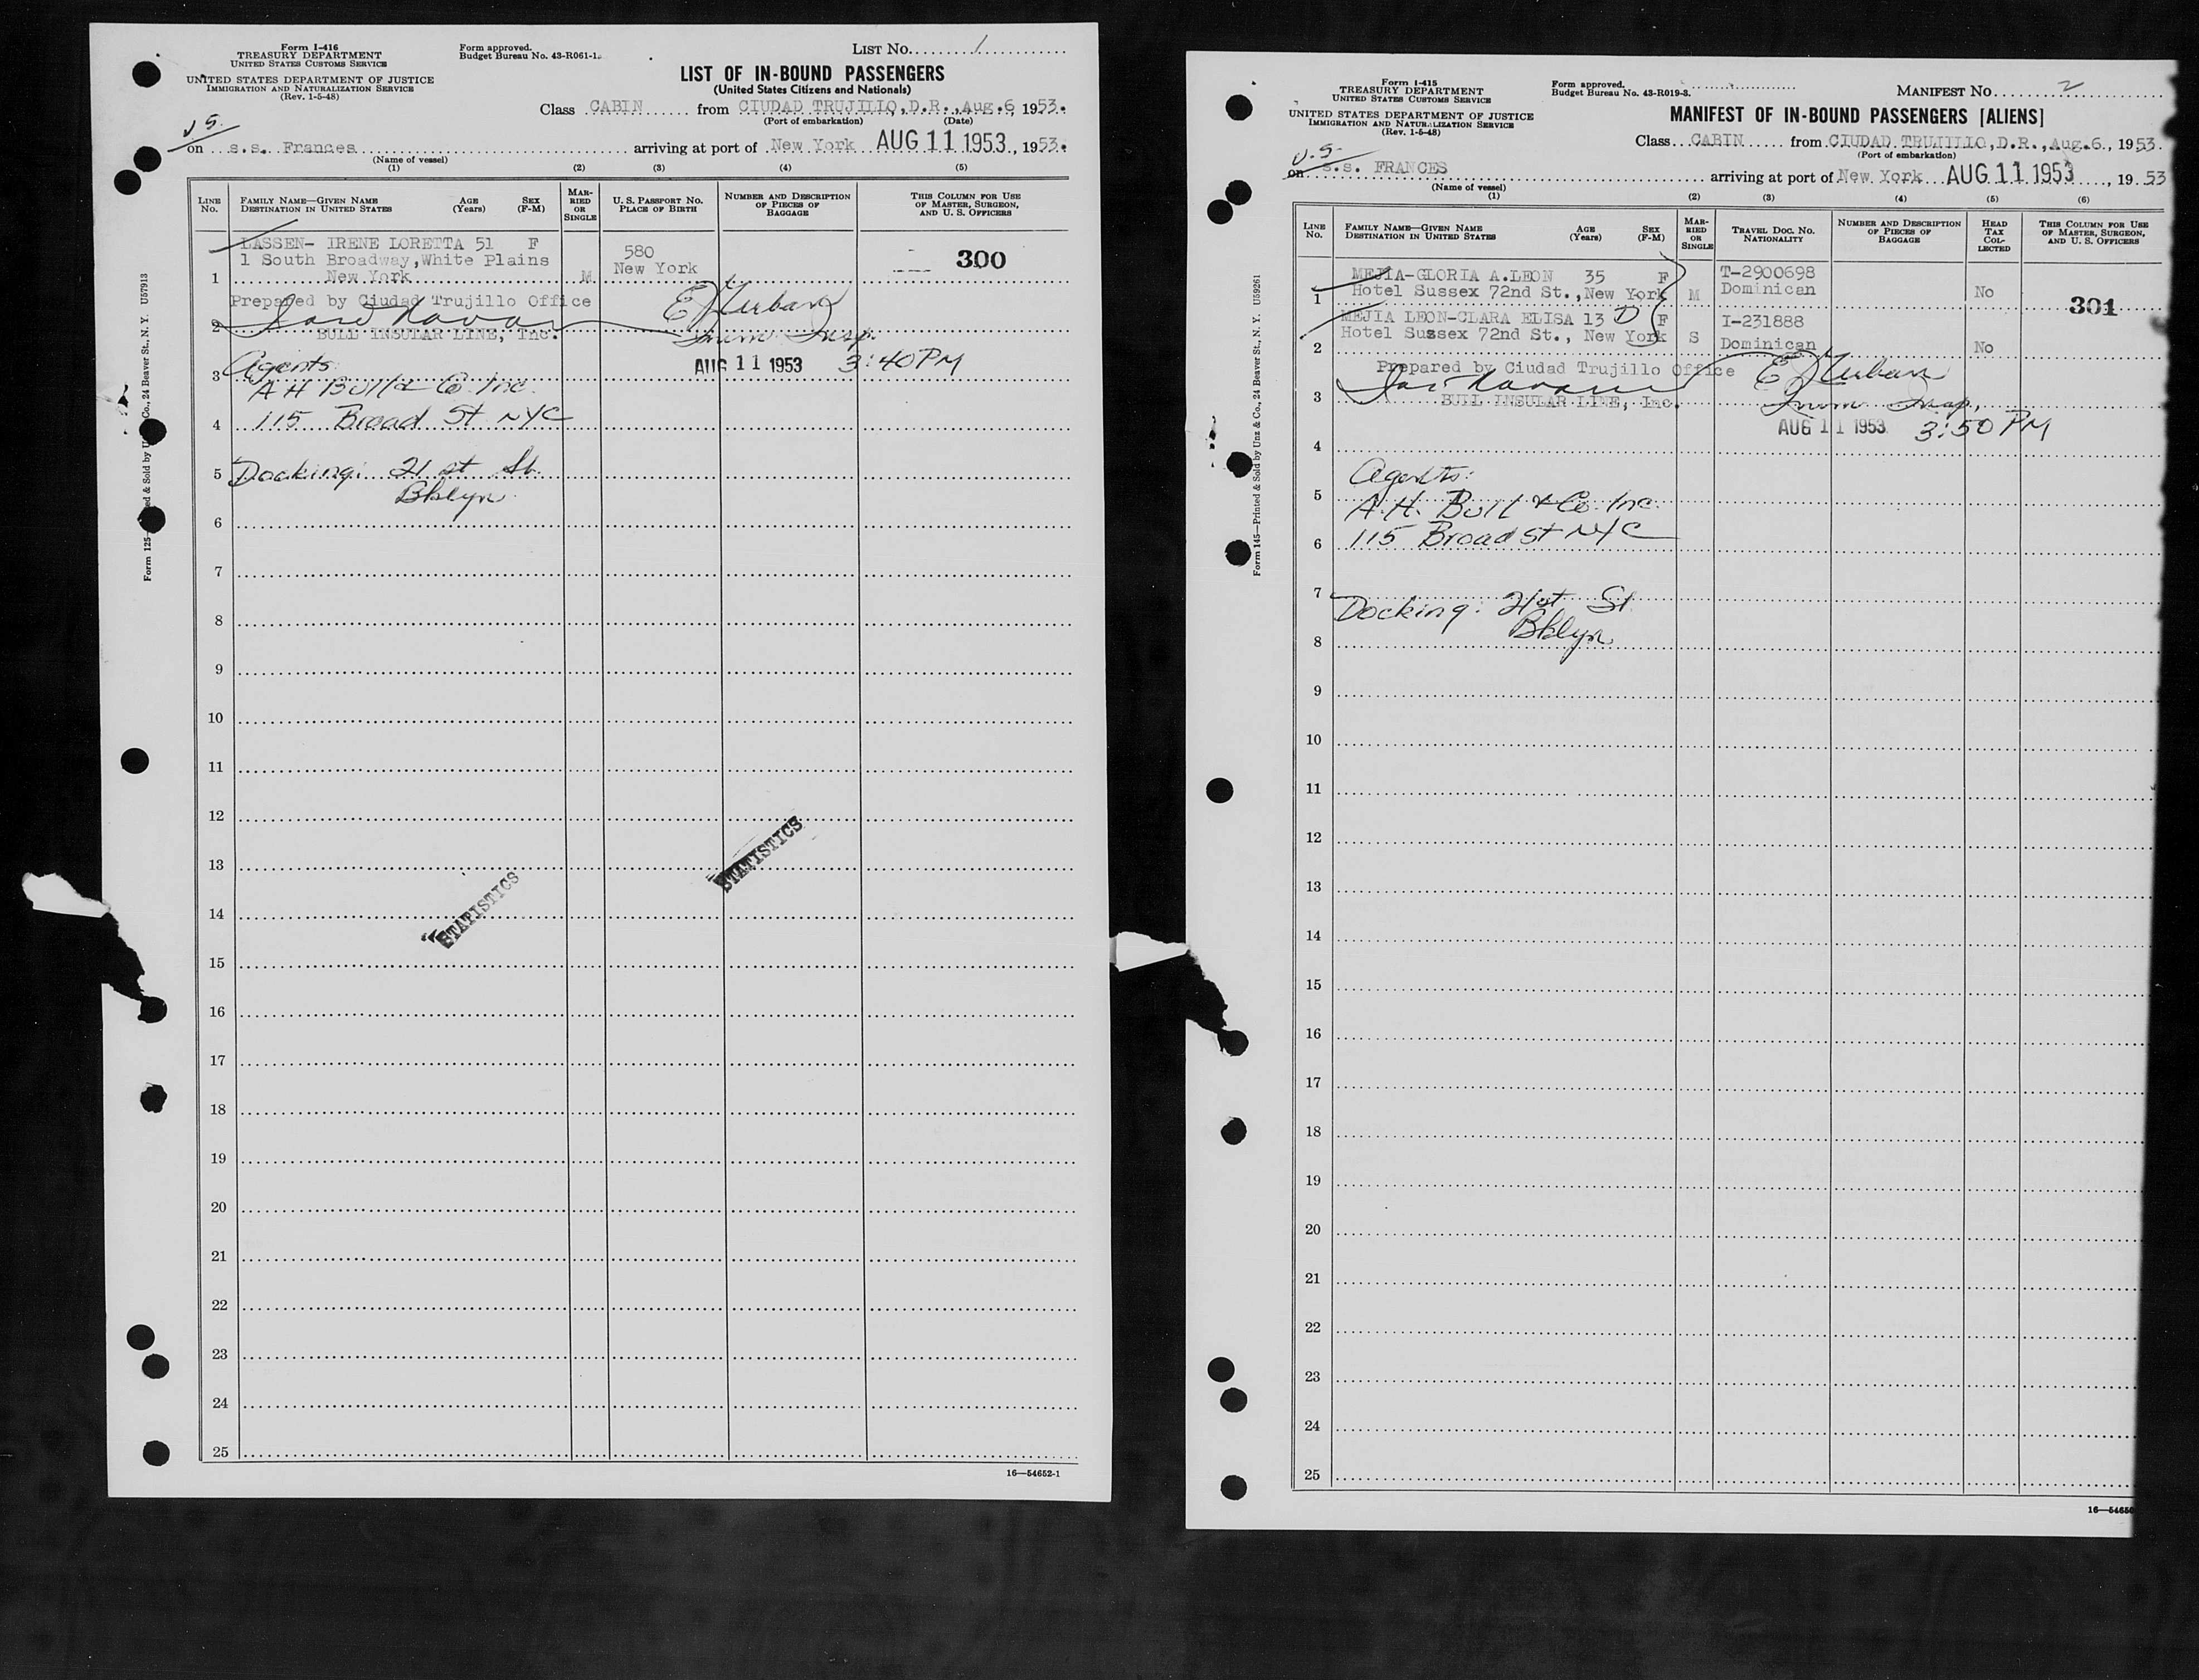 Form I-416
TREASURY DEPARTMENT
UNITED STATES CUSTOMS SERVICE
UNITED STATES DEPARTMENT OF JUSTICE
IMMIGRATION AND NATURALIZATION SERVICE
(Rev. 1-5-48)
Form approved.
Budget Bureau No. 43-R061-1.
LIST No. 1
LIST OF IN-BOUND PASSENGERS
(United States Citizens and Nationals)
Class CABIN from CIUDAD TRUJILLO, D.R., Aug. 6, 1953.
(Port of embarkation) (Date)
U.S.
on s.s. Frances arriving at port of New York AUG 11 1953, 1953.
(Name of vessel)
(1) (2) (3) (4) (5)
LINE No. FAMILY NAME—GIVEN NAME DESTINATION IN UNITED STATES AGE (Years) SEX (F-M) MARRIED OR SINGLE U. S. PASSPORT NO. PLACE OF BIRTH NUMBER AND DESCRIPTION OF PIECES OF BAGGAGE THIS COLUMN FOR USE OF MASTER, SURGEON, AND U. S. OFFICERS
LASSEN- IRENE LORETTA 51 F 580 300
1 South Broadway, White Plains New York
1 New York M
Prepared by Ciudad Trujillo Office E Urban
2 BULL INSULAR LINE, Inc. Imm Insp.
AUG 11 1953 3:40 PM
Agents:
3 A H Bull & Co. Inc.
4 115 Broad St NYC
5 Docking: 21st St.
Bklyn
6
7
8
9
10
11
12
13 STATISTICS
14 STATISTICS
15
16
17
18
19
20
21
22
23
24
25
16—54652-1
Co., 24 Beaver St., N. Y. U57913
Form I-415
TREASURY DEPARTMENT
UNITED STATES CUSTOMS SERVICE
UNITED STATES DEPARTMENT OF JUSTICE
IMMIGRATION AND NATURALIZATION SERVICE
(Rev. 1-5-48)
Form approved.
Budget Bureau No. 43-R019-3.
MANIFEST No. 2
MANIFEST OF IN-BOUND PASSENGERS [ALIENS]
Class CABIN from CIUDAD TRUJILLO, D.R., Aug. 6, 1953.
(Port of embarkation)
U.S.
on s.s. FRANCES arriving at port of New York AUG 11 1953, 1953
(Name of vessel)
(1) (2) (3) (4) (5) (6)
LINE No. FAMILY NAME—GIVEN NAME DESTINATION IN UNITED STATES AGE (Years) SEX (F-M) MARRIED OR SINGLE TRAVEL DOC. NO. NATIONALITY NUMBER AND DESCRIPTION OF PIECES OF BAGGAGE HEAD TAX COLLECTED THIS COLUMN FOR USE OF MASTER, SURGEON, AND U. S. OFFICERS
MEJIA-GLORIA A.LEON 35 F T-2900698
1 Hotel Sussex 72nd St., New York M Dominican No 301
MEJIA LEON-CLARA ELISA 13 D F I-231888
2 Hotel Sussex 72nd St., New York S Dominican No
Prepared by Ciudad Trujillo Office E Urban
3 BULL INSULAR LINE, Inc. Imm Insp.
AUG 11 1953 3:50 PM
4
Agents:
5 A.H. Bull & Co. Inc.
6 115 Broad St NYC
7 Docking: 21st St.
8 Bklyn.
9
10
11
12
13
14
15
16
17
18
19
20
21
22
23
24
25
Form 145—Printed & Sold by Unz & Co., 24 Beaver St., N. Y. U59261